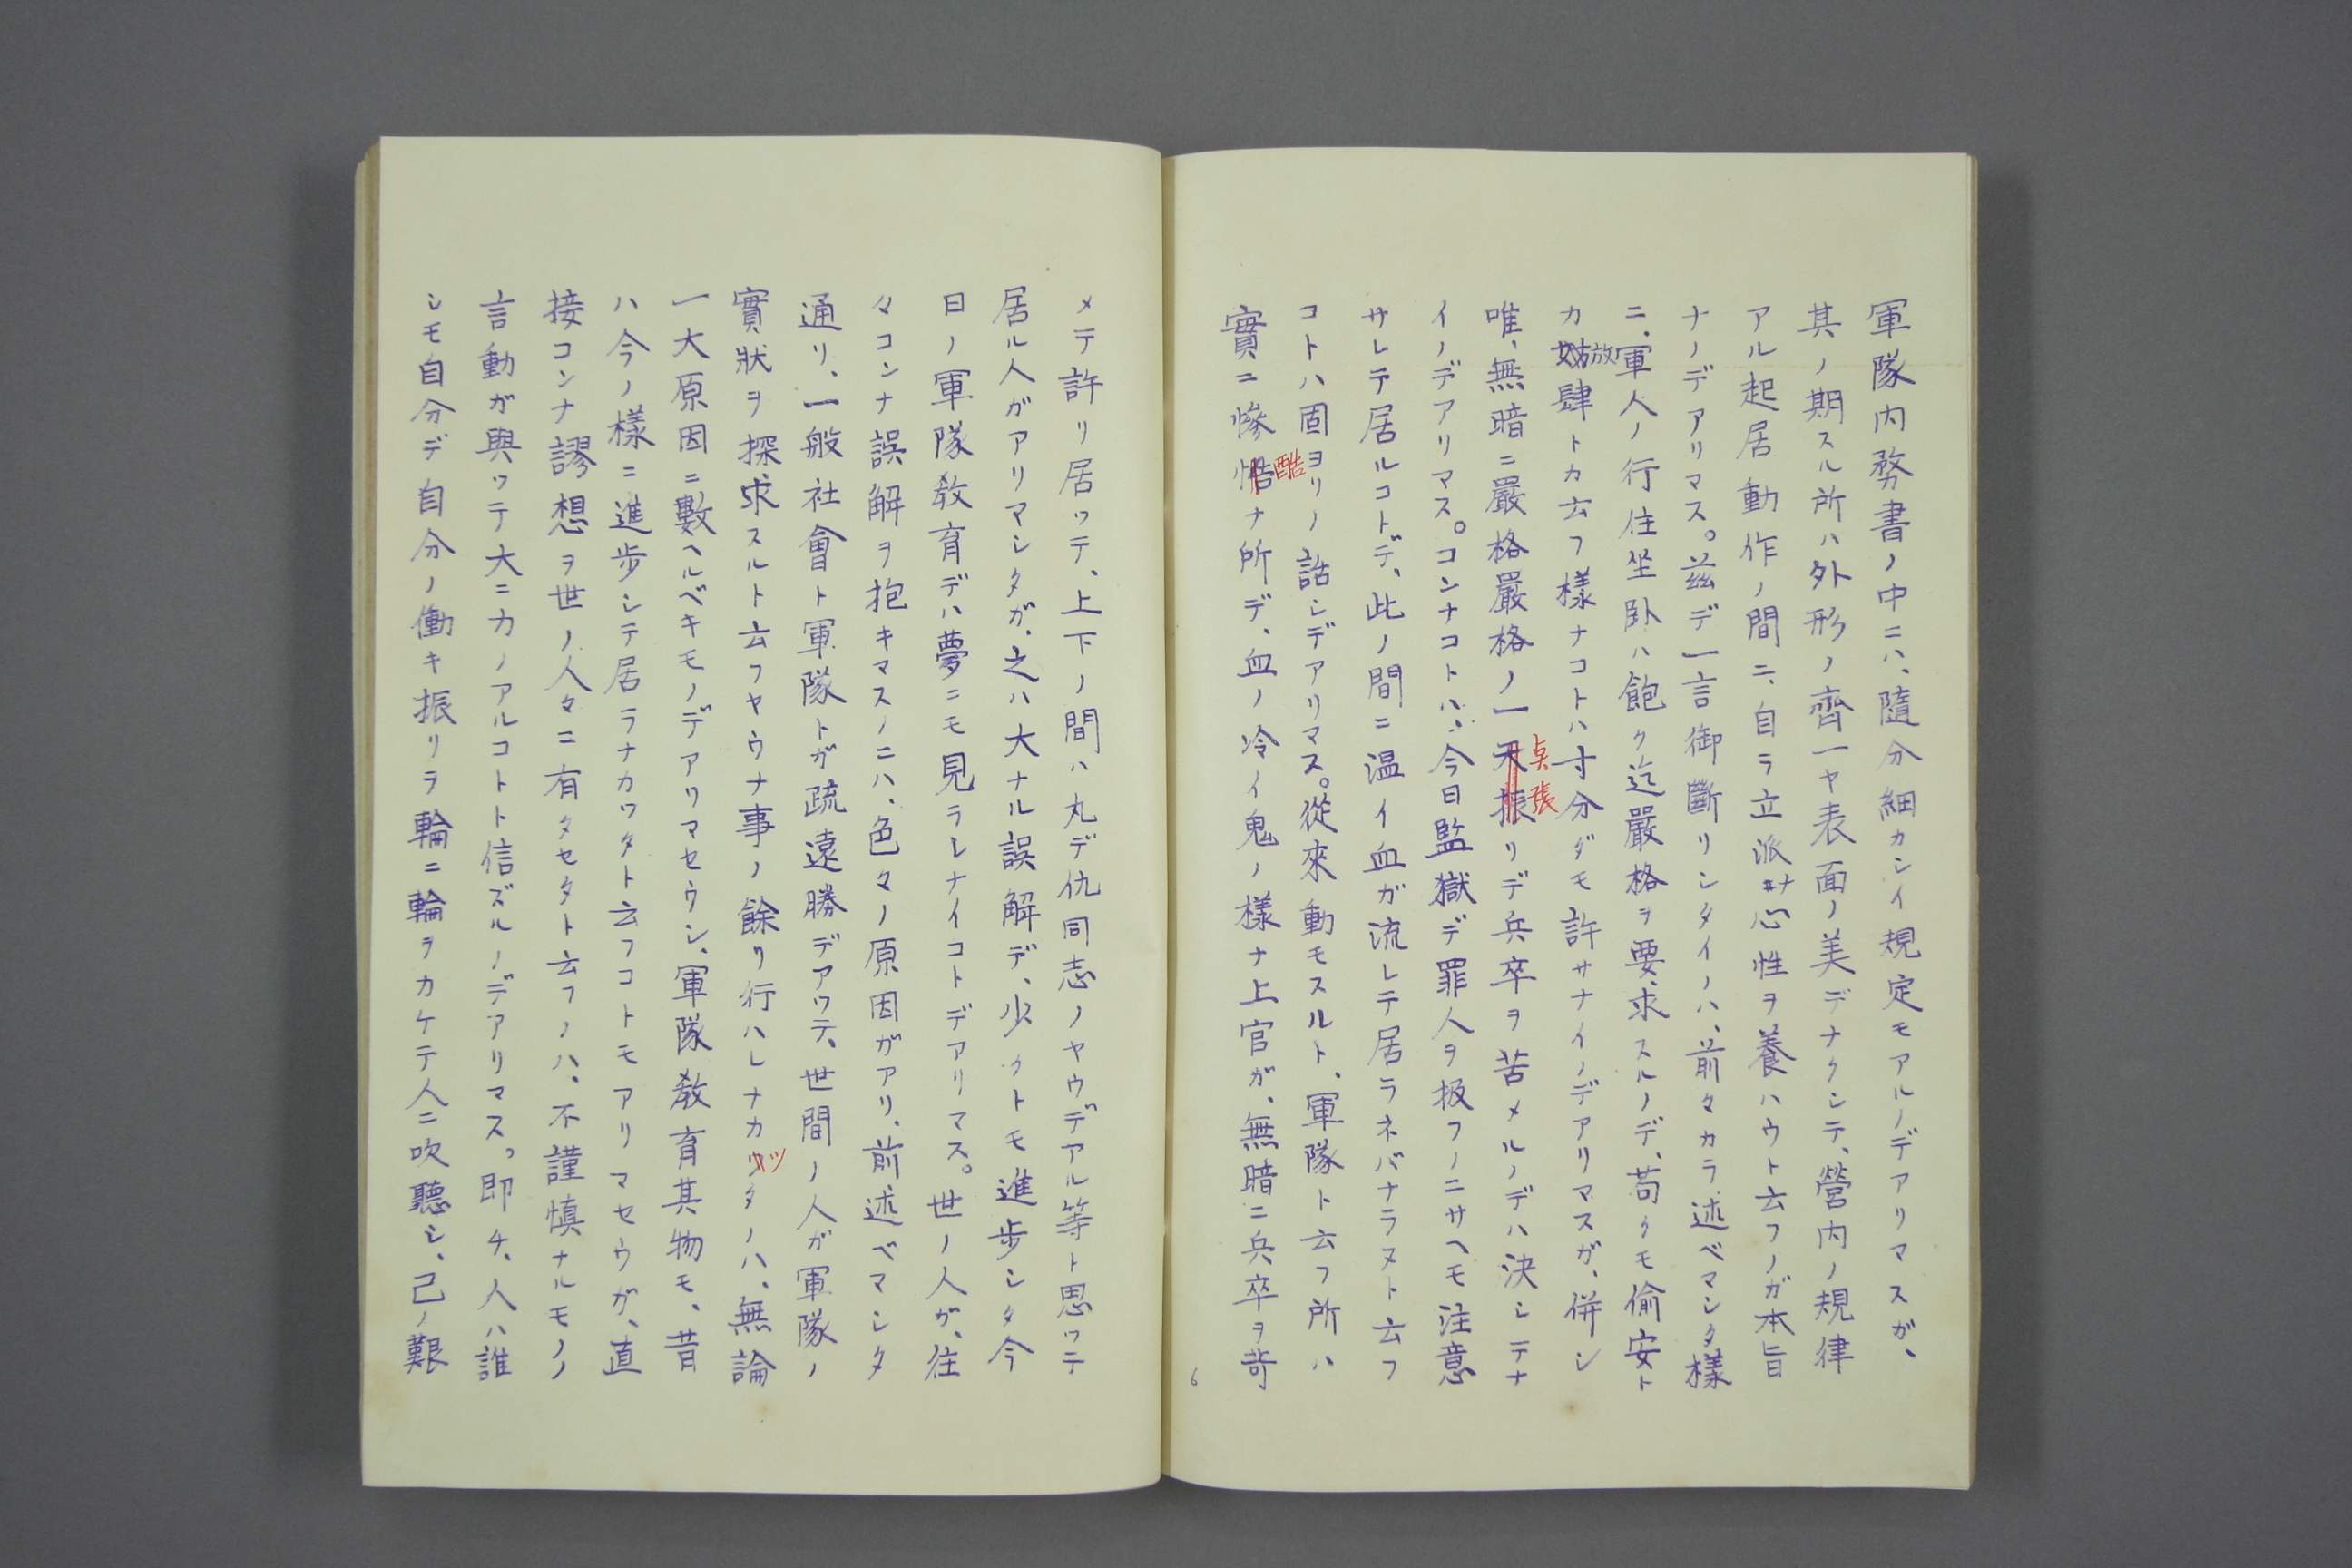 軍隊内務書ノ中ニハ、隨分細カシイ規定モアルノデアリマスガ、
其ノ期スル所ハ外形ノ齊一ヤ表面ノ美デナクシテ、營内ノ規律
アル起居動作ノ間ニ、自ラ立派ナ心性ヲ養ハウト云フノガ本旨
ナノデアリマス。茲デ一言御斷リシタイノハ、前々カラ述ベマシタ樣
ニ、軍人ノ行住坐臥ハ飽ク迄嚴格ヲ要求スルノデ、苟クモ偷安ト
カ放肆トカ云フ樣ナコトハ寸分ダモ許サナイノデアリマスガ、併シ
唯、無暗ニ嚴格嚴格ノ一点張リデ兵卒ヲ苦メルノデハ決シテナ
イノデアリマス。コンナコトハ、今日監獄デ罪人ヲ扱フノニサヘモ注意
サレテ居ルコトデ、此ノ間ニ温イ血ガ流レテ居ラネバナラヌト云フ
コトハ固ヨリノ話シデアリマス。從來動モスルト、軍隊ト云フ所ハ
實ニ慘酷ナ所デ、血ノ冷イ鬼ノ樣ナ上官ガ、無暗ニ兵卒ヲ苛
6
メテ許リ居ッテ、上下ノ間ハ丸デ仇同志ノヤウデアル等ト思ッテ
居ル人ガアリマシタガ、之ハ大ナル誤解デ、少クトモ進歩シタ今
日ノ軍隊敎育デハ夢ニモ見ラレナイコトデアリマス。世ノ人ガ、往
々コンナ誤解ヲ抱キマスノニハ、色々ノ原因ガアリ、前述ベマシタ
通リ、一般社會ト軍隊トガ疏遠勝デアッテ、世間ノ人ガ軍隊ノ
實狀ヲ探求スルト云フヤウナ事ノ餘リ行ハレナカッタノハ、無論
一大原因ニ數ヘルベキモノデアリマセウシ、軍隊敎育其物モ、昔
ハ今ノ樣ニ進歩シテ居ラナカッタト云フコトモアリマセウガ、直
接コンナ謬想ヲ世ノ人々ニ有タセタト云フノハ、不謹愼ナルモノノ
言動ガ與ッテ大ニカノアルコトト信ズルノデアリマス。即チ、人ハ誰
シモ自分デ自分ノ働キ振リヲ輪ニ輪ヲカケテ人ニ吹聽シ、己ノ艱